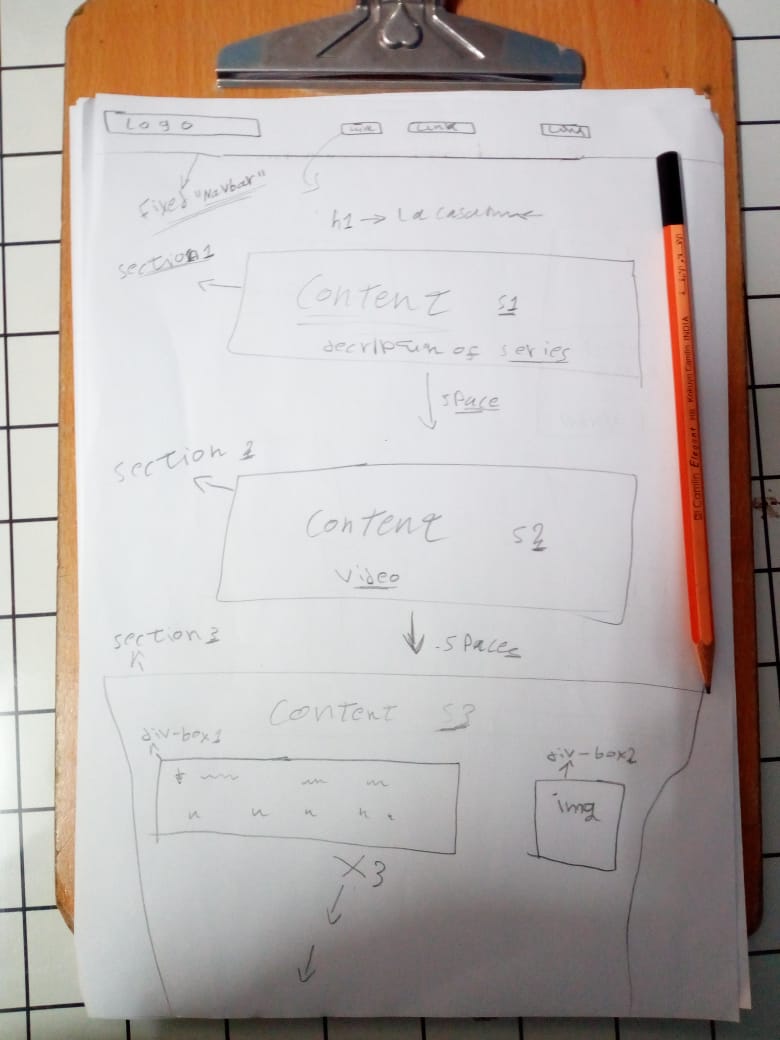 Logo
Link Link Link
Fixed "Navbar"
h1 → La casa
section1
Content S1
decription of series
space
section 2
Content S2
video
spaces
section 3
Content S3
div-box1
div-box2
img
X3
Camlin Elegant HB Kokuyo Camlin INDIA